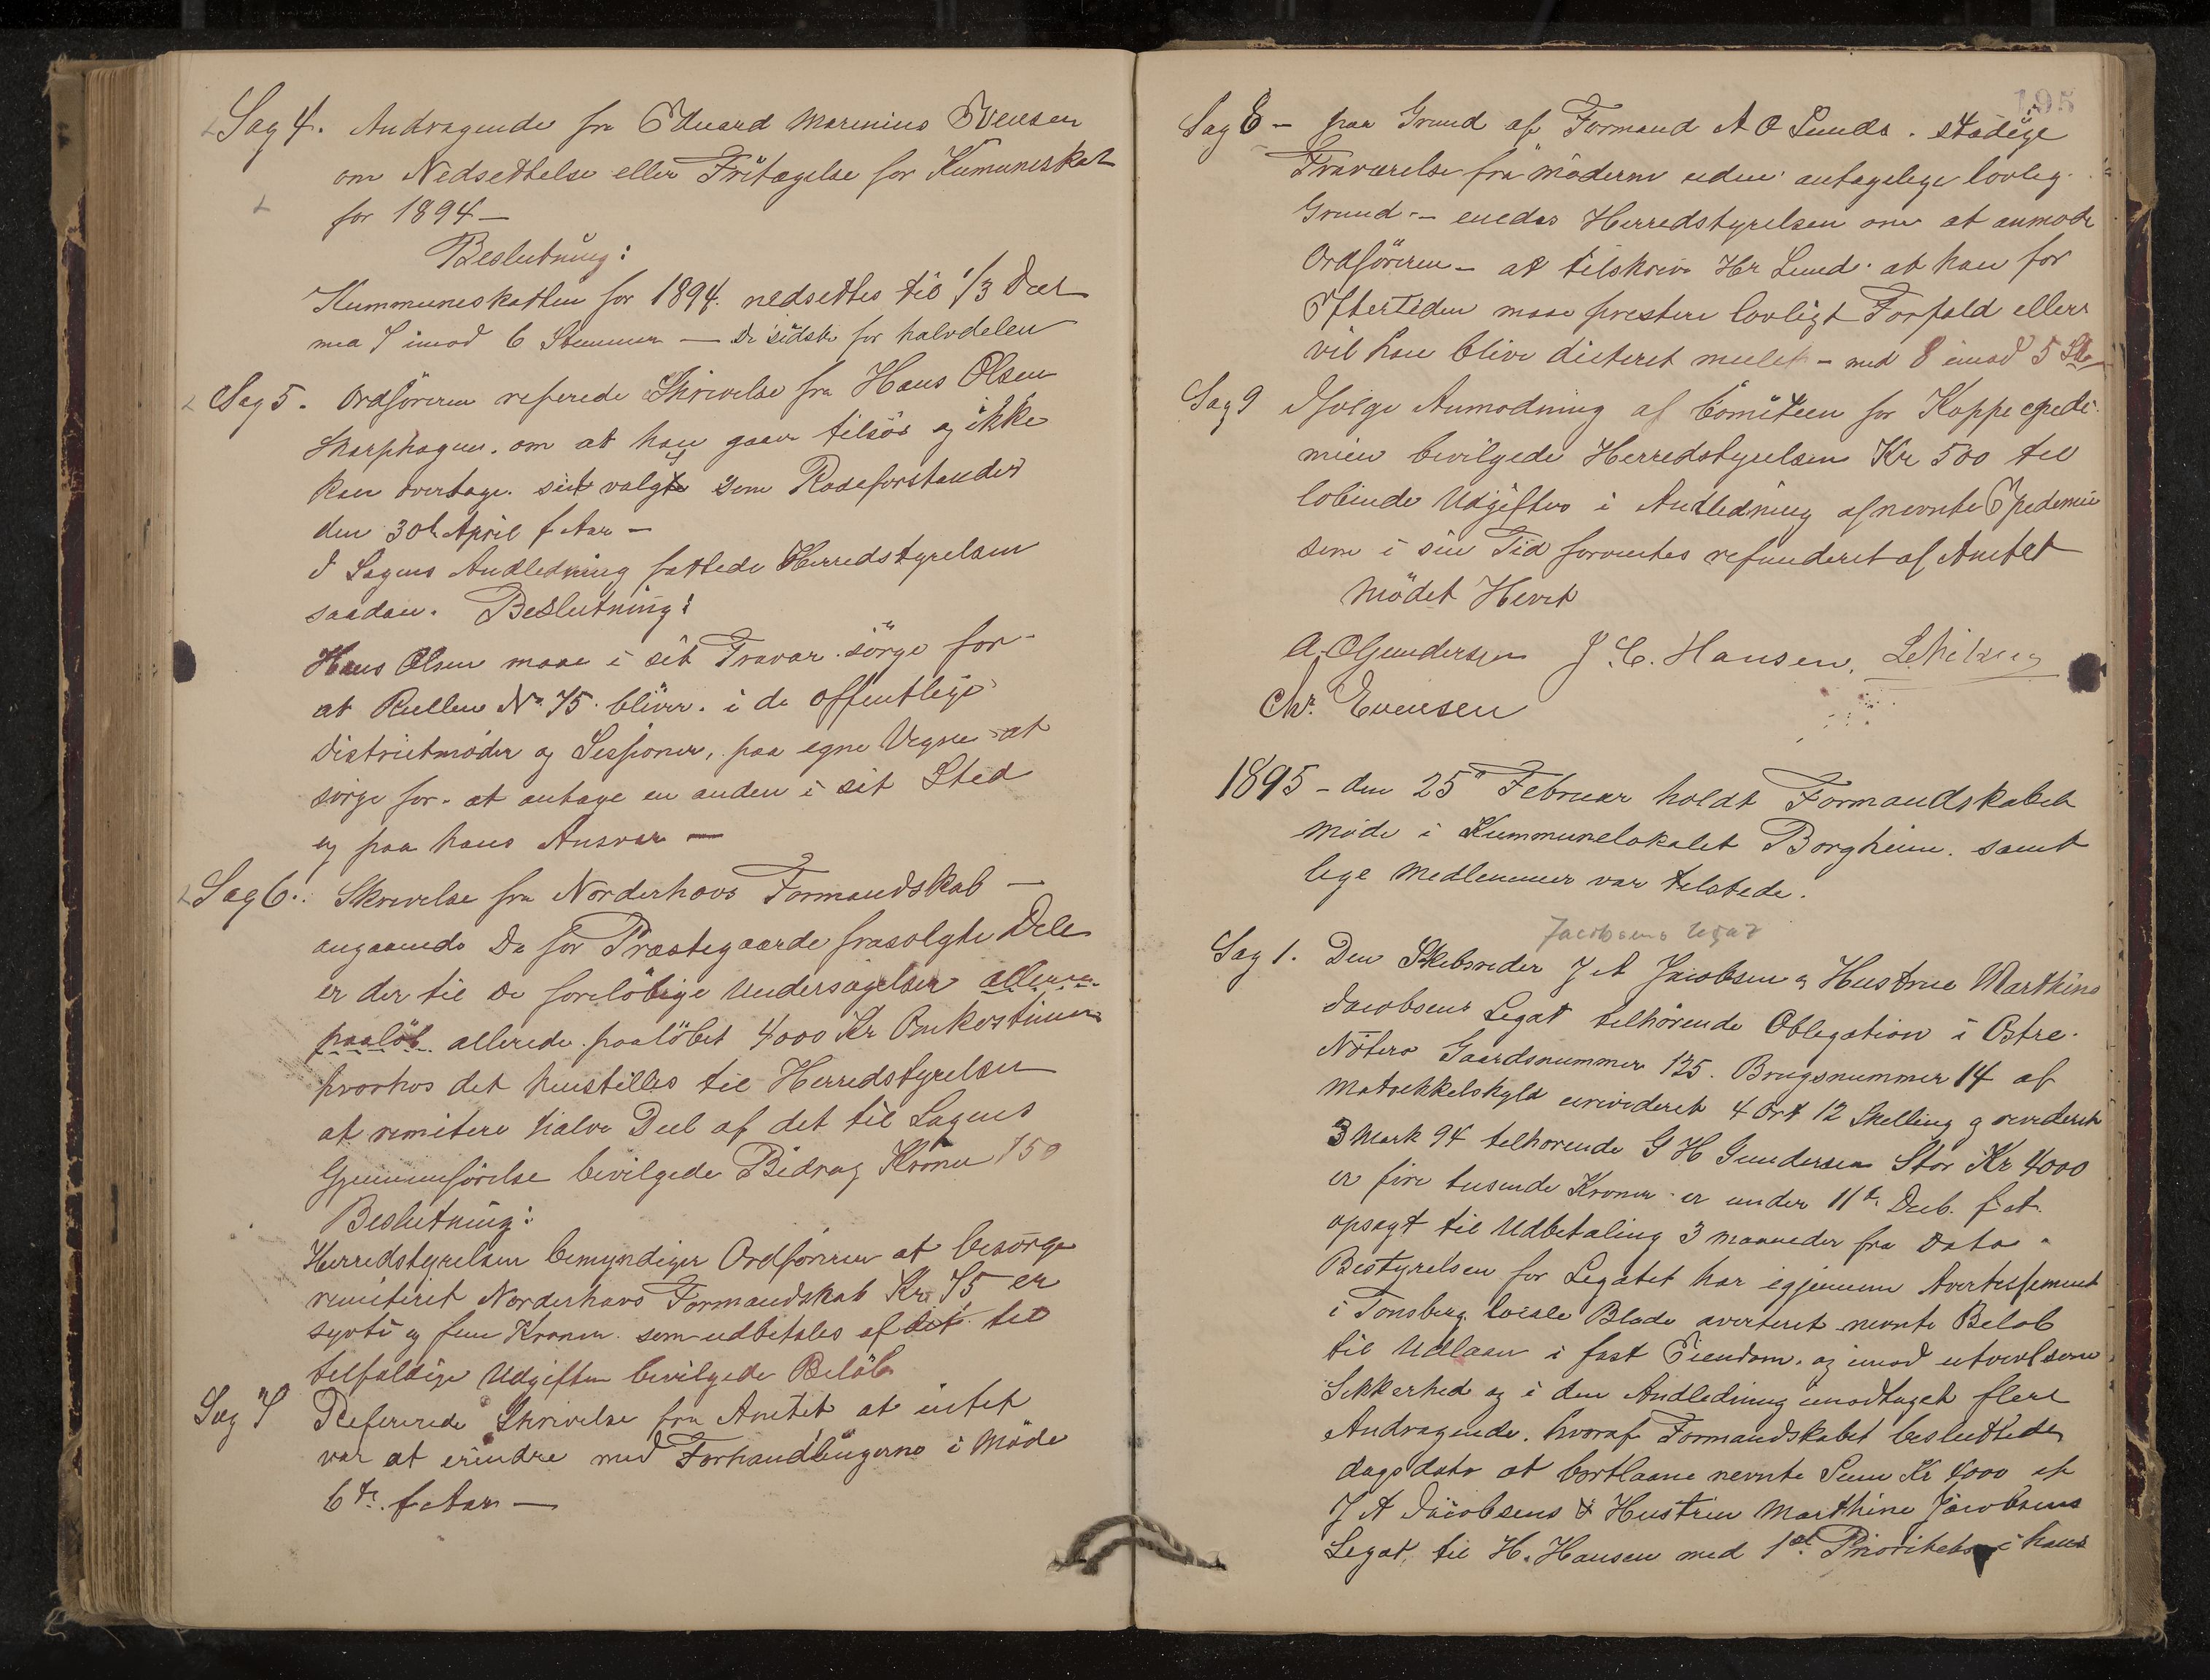 Sag 4. Andragende fra Eduard Marinius Evensen
om Nedsettelse eller Fritagelse for Kumuneskat
for 1894 –
Beslutning:
Kummuneskatten for 1894. nedsettes til 1/3 Deel
mea 7 imod 6 Stemmer — De sidste for halvdelen
Sag 5. Ordföreren referede Skrivelse fra Hans Olsen
Skarphagen. om at han gaar tilsös og ikke
kan overtage. sit valgt som Rodeforstander
den 30te April f Aar –
I Sagens Andledning fattede Herredstyrelsen
saadan. Beslutning:
Hans Olsen maae i sit Fravær. sörge for
at Rullen No. 75. bliver. i de offentlige
Districtmöder og Sessioner, paa egne Vegne at
sörge for. at antage en anden i sit Sted
og paa hans Ansvar —
Sag 6. Skrivelse fra Norderhovs Formandskab —
angaaende De for Præstegaarde frasolgte Dele
er der til de forelöbige Undersögelser aller
paalöb allerede. paalöbet 4000 Kr Omkostninger
hvorhos det henstilles til Herredstyrelsen
at remitere halve Deel af det til Sagens
Gjennemförelse bevilgede Bidrag Kroner 150
Beslutning:
Herredstyrelsen bemyndiger Ordföreren at besörge
remiteret Norderhovs Formandskab Kr 75 er
sytti og fem Kroner. som udbetales af det til
tilfaldige Udgifter bevilgede Belöb
Sag 7 Refererede Skrivelse fra Amtet at intet
var at erindre med Forhandlingerne i Möde
6te f Aar —
195
Sag 8 – paa Grund af Formand A O Lunds. stadige
Fraværelse fra möderne uden antagelige lovlig
Grund – enedes Herredstyrelsen om at anmode
Ordföreren – at tilskrive Hr Lund. at han for
Eftertiden maae prestere lovligt Forfald ellers
vil han blive dicteret mulct – med 8 imod 5 St
Sag 9 Ifölge Anmodning af Comiteen for Koppe epede-
mien bevilgede Herredstyrelsen Kr 500 til
lobende Udgifter i Andledning af nevnte Epedemie
som i sin Tid forventes refunderet af Amtet
Mödet Hevet
A. O Gundersen J. C. Hansen.
Chr. Evensen
1895 – den 25 Februar holdt Formandskabet
Möde i Kummunelokalet Borgheim. samt
lige Medlemmer var tilstede.
Jacobsens Legat
Sag 1. Den Skibsreder J A Jacobsen og Hustrue Marthine
Jacobsens Legat tilhörende Obligation i Østre
Nötero Gaardsnummer 125. Brugsnummer 14 af
Matrikkelskyld urevideret 4 Ort 12 Skelling g revideret
3 Mark 94 tilhorende G H Gundersen Stor Kr 4000
er fire tusende Kroner er under 11te Decb. f A.
opsagt til Udbetaling 3 maaneder fra Dato.
Bestyrelsen for Legatet har igjennem Avertissement
i Tonsberg locale Blade averteret nevnte Belob
til Udlaan i fast Eiendom. og imod
Sekkerhed og i den Andledning imodtaget flere
Andragende. hvoraf Formandskabet besluttede
dags dato at bortlaane nevnte Sum Kr 4000 af
J A Jacobsens & Hustrue Marthine Jacobsens
Legat, til H. Hansen med 1st Prioritets i hans